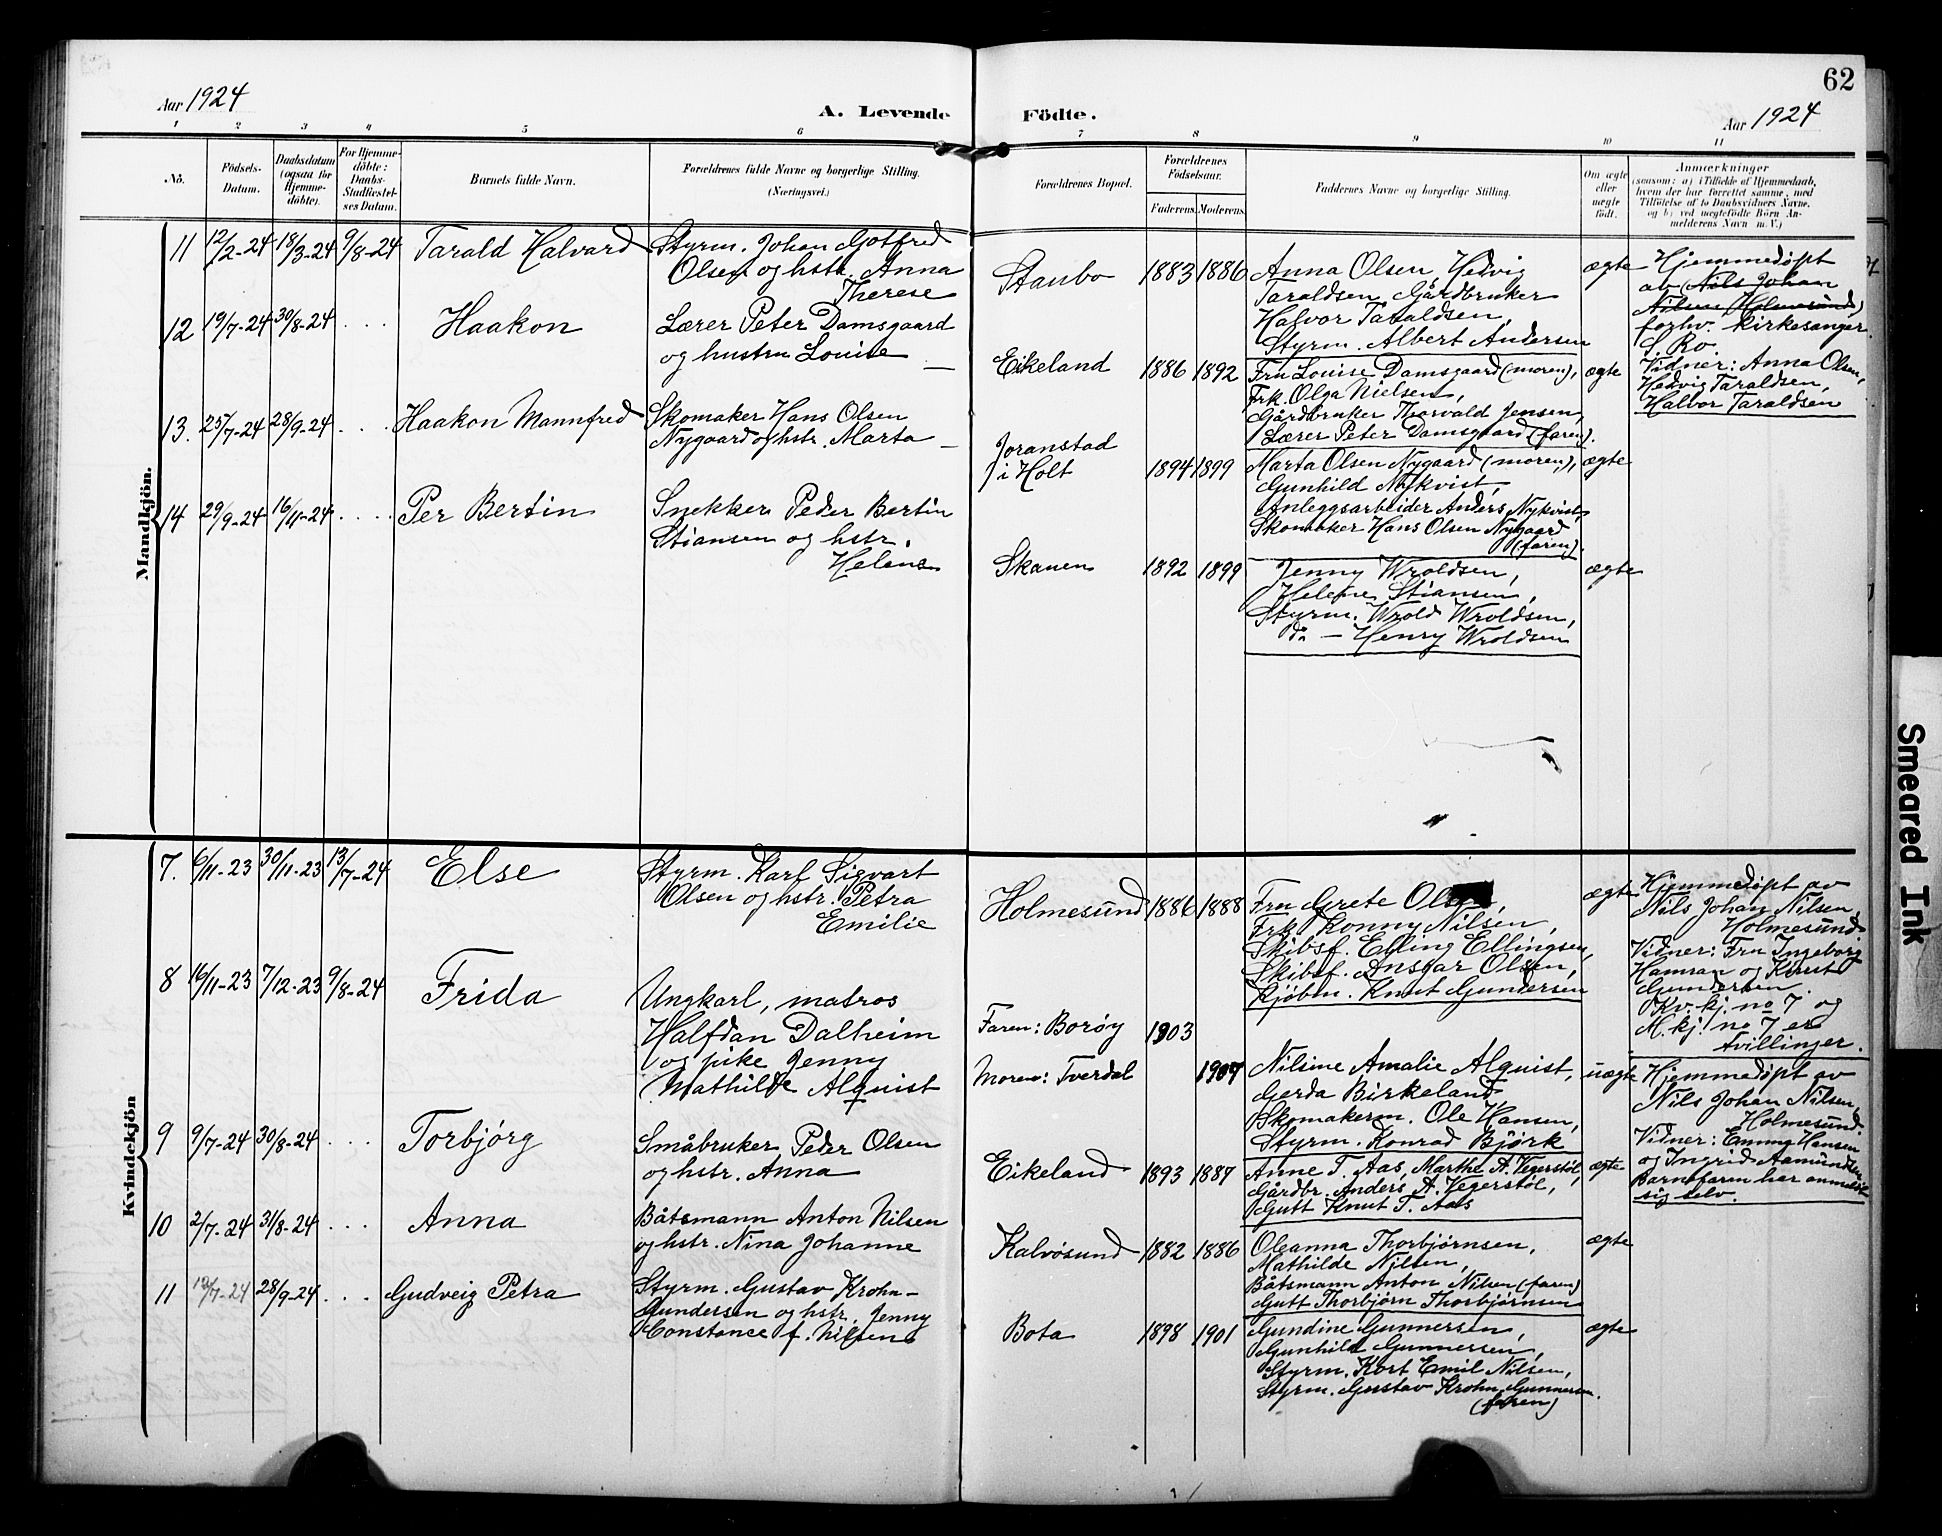 62
Aar 1924
A. Levende Födte.
Aar 1924
1 2 3 4 5 6 7 8 9 10 11
Nö.
Födsels-Datum.
Daabsdatum (ogsaa for Hjemme-döbte).
For Hjemme-döbte: Daabs-Stadfæstel-ses Datum.
Barnets fulde Navn.
Forældrenes fulde Navne og borgerlige Stilling. (Næringsvei.)
Forældrenes Bopæl.
Forældrenes Födselsaar.
Faderens. Moderens.
Faddernes Navne og borgerlige Stilling.
Om ægte eller uægte födt.
Anmærkninger
(saasom: a) i Tilfælde af Hjemmedaab,
hvem der har forrettet samme, med
Tilföielse af to Daabsvidners Navne.
og b) ved uægtefödte Börn An-
melderens Navn m. V.)
Mandkjön.
11 12/2-24 18/3-24 9/8-24 Tarald Halvard
Styrm. Johan Gotfred
Olsen og hstr. Anna
Therese
Staubo 1883 1886
Anna Olsen, Hedvig
Taraldsen, Gårdbruker
Halvor Taraldsen,
Styrm. Albert Andersen
ægte
Hjemmedøpt
av (Nils Johan
Nilsen (Holmesund)
forhv. kirkesanger
S. Ro.
Vidner: Anna Olsen,
Hedvig Taraldsen,
Halvor Taraldsen
12 19/7-24 30/8-24 . . . Haakon
Lærer Peter Damsgaard
og hustru Louise —
Eikeland 1886 1892
Fru Louise Damsgaard (moren),
Frk. Olga Nielsen,
Gårdbruker Thorvald Jensen,
Lærer Peter Damsgaard (faren).
ægte
13. 25/7-24 28/9-24 . . . Haakon Mannfred
Skomaker Hans Olsen
Nygaard og hstr. Marta —
Joranstad
i Holt 1894 1899
Marta Olsen Nygaard (moren),
Gunhild Nykvist,
Anleggsarbeider Anders Nykvist,
Skomaker Hans Olsen Nygaard
(faren).
ægte
14 29/9-24 16/11-24 . . . . Per Bertin
Snekker Peder Bertin
Stiansen og hstr.
Helene
Skauen 1892 1899
Jenny Wroldsen,
Helene Stiansen,
Styrm. Wrold Wroldsen,
do — Henry Wroldsen
ægte
Kvindekjön
7. 6/11-23 30/11-23 13/7-24 Else
Styrm. Karl Sigvart
Olsen og hstr. Petra
Emilie
Holmesund 1886 1888
Fru Grete
Frk. Konny Nilsen,
Skibsf. Elling Ellingsen,
Skibsf. Ansgar Olsen,
Kjøbm. Knut Gundersen
ægte
Hjemmedøpt av
Nils Johan Nilsen,
Holmesund
Vidner: Fru Ingeborg
Hamran og Knut
Gundersen.
Kv. kj. no 7. og
M. kj. no 7 er
tvillinger.
8 16/11-23 7/12-23 9/8-24 Frida
Ungkarl, matros
Halfdan Dalheim
og pike Jenny
Mathilde Alquist
Faren: Borøy 1903
Moren: Tverdal 1904
Nilsine Amalie Alquist,
Gerda Birkeland,
Skomakerm. Ole Hansen,
Styrm. Konrad Bjørk
uægte
Hjemmedøpt av
Nils Johan Nilsen,
Holmesund.
Vidner: Emma Hansen
og Ingrid Aamundsen
Barnefaren har anmeldt
sig selv.
9 9/7-24 30/8-24 . . . Torbjørg
Småbruker Peder Olsen
og hstr. Anna
Eikeland 1893 1887
Anne T. Aas, Marthe A. Vegerstøl,
Gårdbr. Anders A. Vegerstøl,
Gutt Knut T. Aas
ægte
10 2/7-24 31/8-24 . . . Anna
Båtsmann Anton Nilsen
og hstr. Nina Johanne
Kalvøsund 1882 1886
Oleanna Thorbjørnsen,
Mathilde Nilsen,
Båtsmann Anton Nilsen (faren)
Gutt Thorbjørn Thorbjørnsen
ægte
11 19/7-24 28/9-24 . . . Gudveig Petra
Styrm. Gustav Krohn-
Gundersen og hstr. Jenny
Constance f. Nilsen
Bota 1898 1901
Gundine Gunnersen,
Gunhild Gunnersen,
Styrm. Kort Emil Nilsen,
Styrm. Gustav Krohn Gunnersen.
(faren)
ægte
Smeared Ink